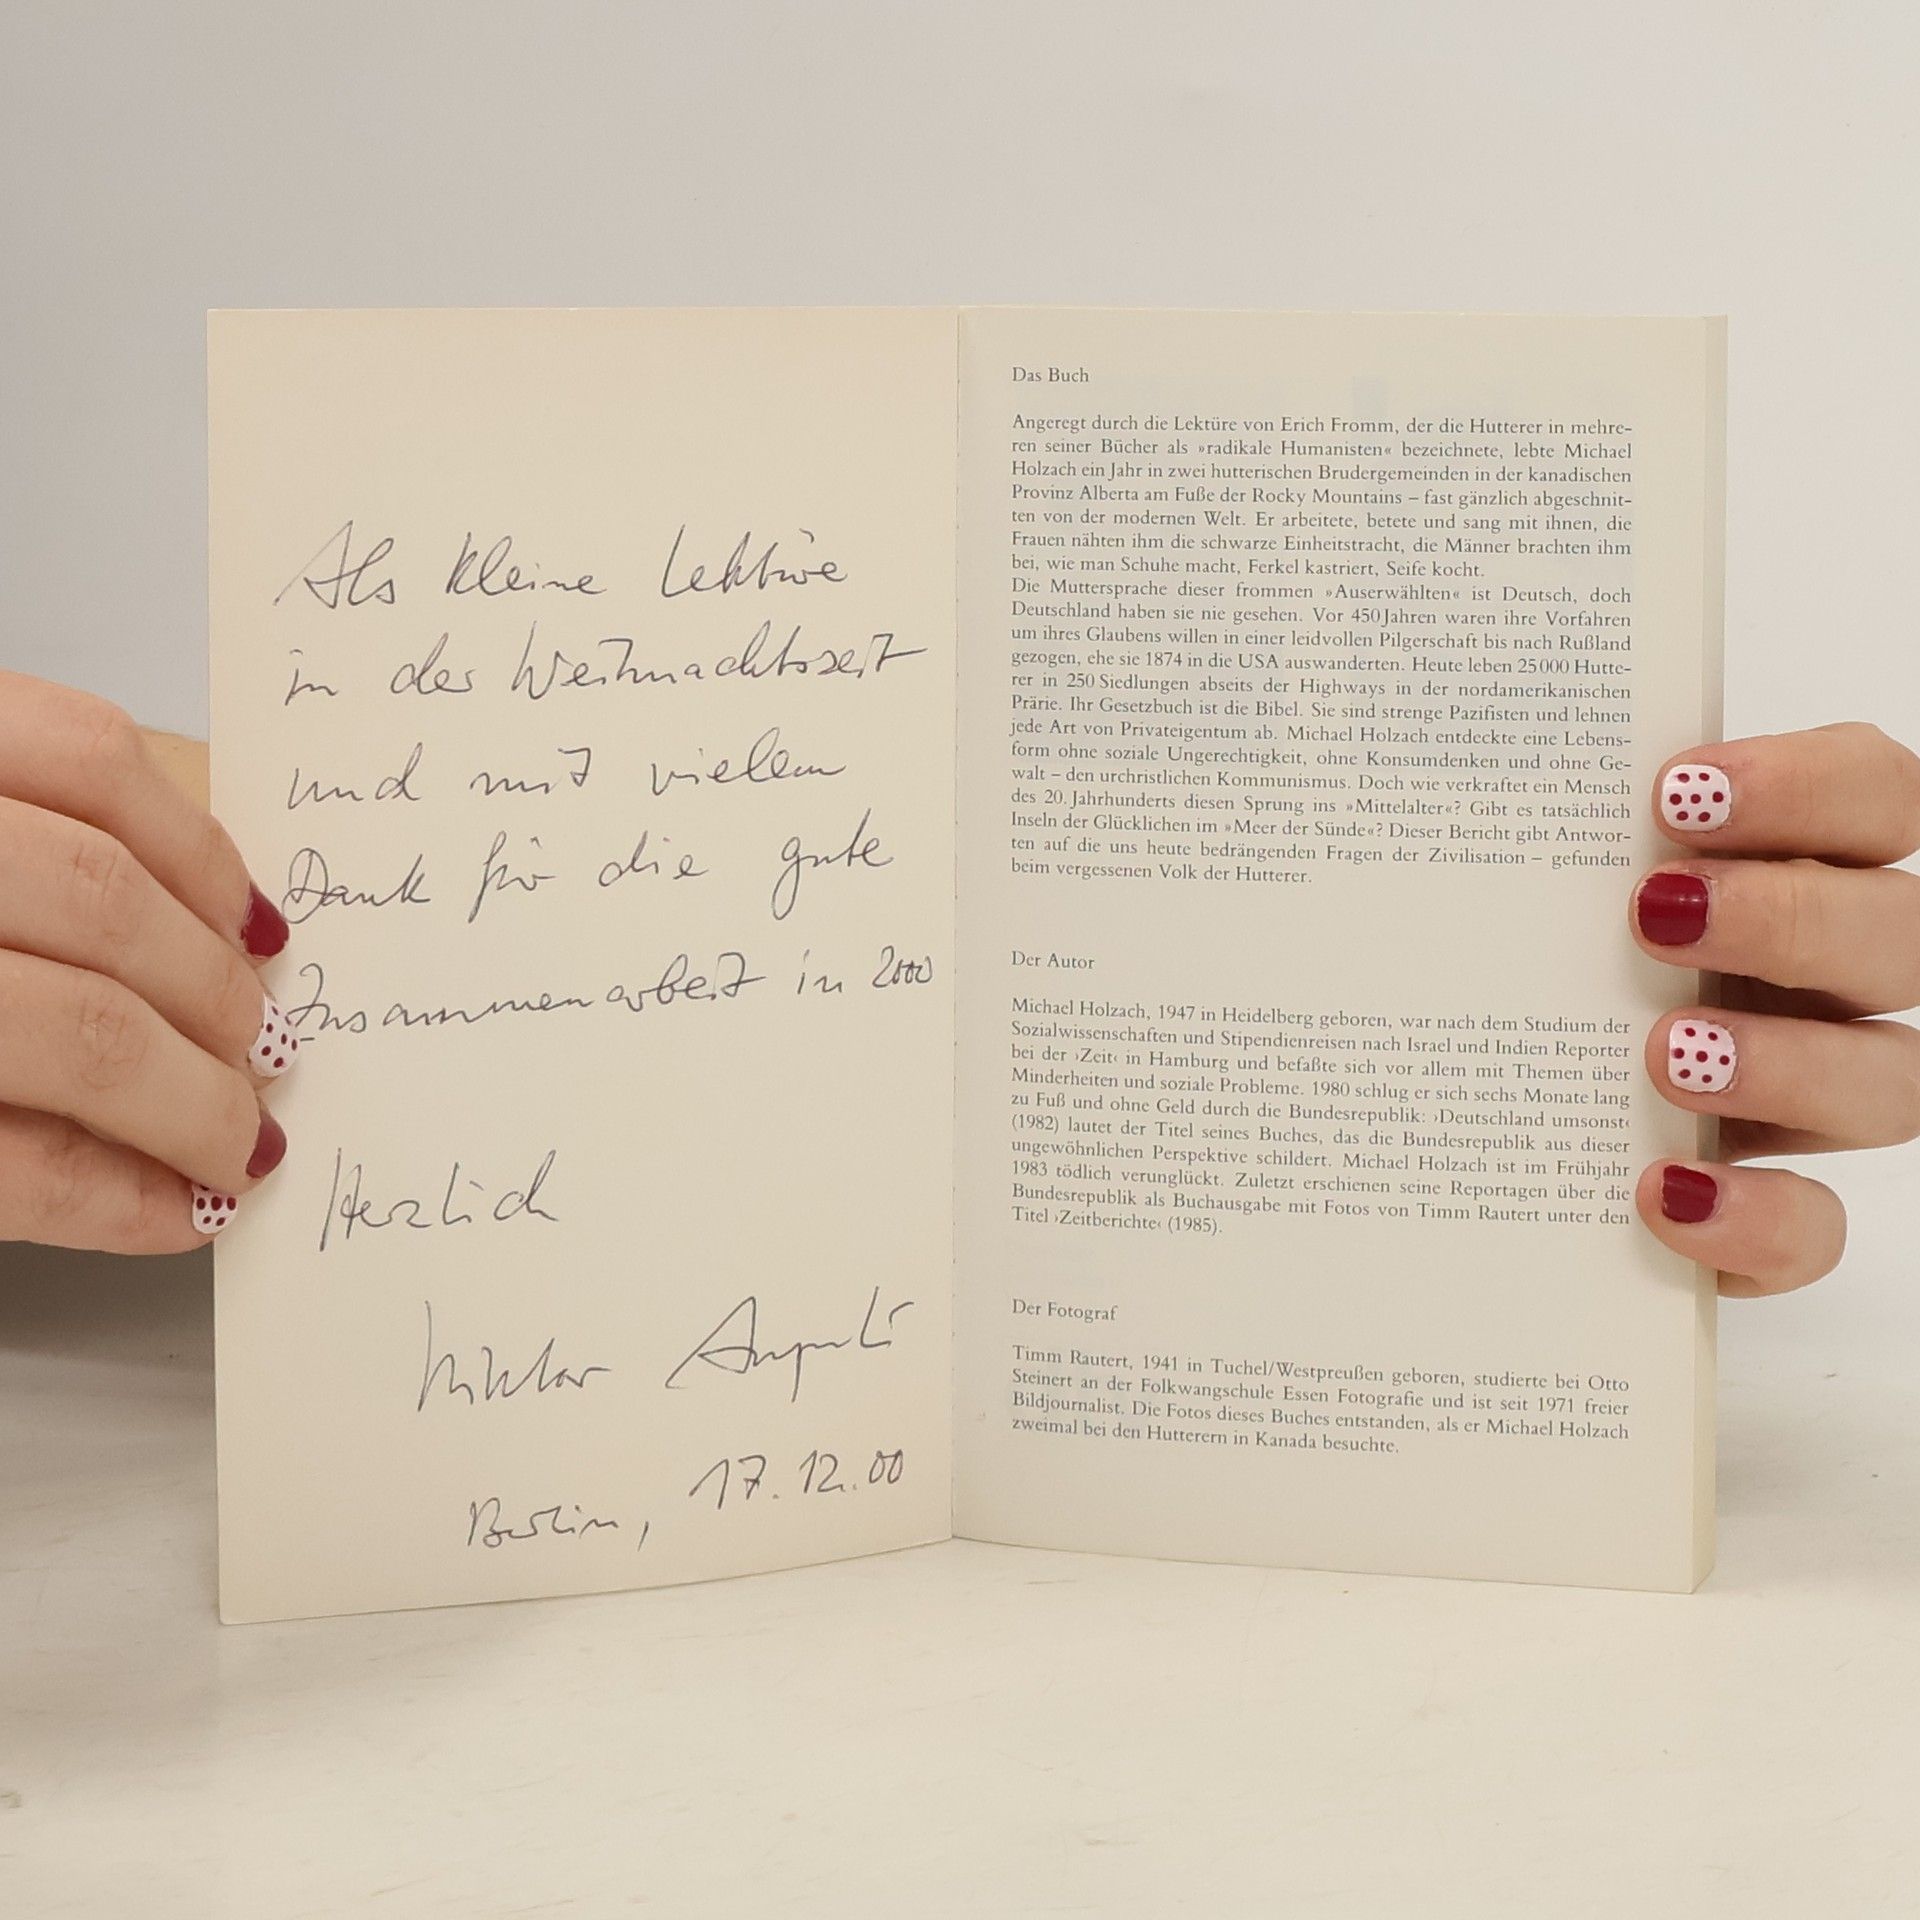 Als kleine Lektüre
in der Weihnachtszeit
und mit vielem
Dank für die gute
Zusammenarbeit in 2000
Herzlich
Viktor
Berlin, 17.12.00
Das Buch
Angeregt durch die Lektüre von Erich Fromm, der die Hutterer in mehre-
ren seiner Bücher als »radikale Humanisten« bezeichnete, lebte Michael
Holzach ein Jahr in zwei hutterischen Brudergemeinden in der kanadischen
Provinz Alberta am Fuße der Rocky Mountains – fast gänzlich abgeschnit-
ten von der modernen Welt. Er arbeitete, betete und sang mit ihnen, die
Frauen nähten ihm die schwarze Einheitstracht, die Männer brachten ihm
bei, wie man Schuhe macht, Ferkel kastriert, Seife kocht.
Die Muttersprache dieser frommen »Auserwählten« ist Deutsch, doch
Deutschland haben sie nie gesehen. Vor 450 Jahren waren ihre Vorfahren
um ihres Glaubens willen in einer leidvollen Pilgerschaft bis nach Rußland
gezogen, ehe sie 1874 in die USA auswanderten. Heute leben 25 000 Hutte-
rer in 250 Siedlungen abseits der Highways in der nordamerikanischen
Prärie. Ihr Gesetzbuch ist die Bibel. Sie sind strenge Pazifisten und lehnen
jede Art von Privateigentum ab. Michael Holzach entdeckte eine Lebens-
form ohne soziale Ungerechtigkeit, ohne Konsumdenken und ohne Ge-
walt – den urchristlichen Kommunismus. Doch wie verkraftet ein Mensch
des 20. Jahrhunderts diesen Sprung ins »Mittelalter«? Gibt es tatsächlich
Inseln der Glücklichen im »Meer der Sünde«? Dieser Bericht gibt Antwor-
ten auf die uns heute bedrängenden Fragen der Zivilisation – gefunden
beim vergessenen Volk der Hutterer.
Der Autor
Michael Holzach, 1947 in Heidelberg geboren, war nach dem Studium der
Sozialwissenschaften und Stipendienreisen nach Israel und Indien Reporter
bei der ›Zeit‹ in Hamburg und befaßte sich vor allem mit Themen über
Minderheiten und soziale Probleme. 1980 schlug er sich sechs Monate lang
zu Fuß und ohne Geld durch die Bundesrepublik: ›Deutschland umsonst‹
(1982) lautet der Titel seines Buches, das die Bundesrepublik aus dieser
ungewöhnlichen Perspektive schildert. Michael Holzach ist im Frühjahr
1983 tödlich verunglückt. Zuletzt erschienen seine Reportagen über die
Bundesrepublik als Buchausgabe mit Fotos von Timm Rautert unter den
Titel ›Zeitberichte‹ (1985).
Der Fotograf
Timm Rautert, 1941 in Tuchel/Westpreußen geboren, studierte bei Otto
Steinert an der Folkwangschule Essen Fotografie und ist seit 1971 freier
Bildjournalist. Die Fotos dieses Buches entstanden, als er Michael Holzach
zweimal bei den Hutterern in Kanada besuchte.